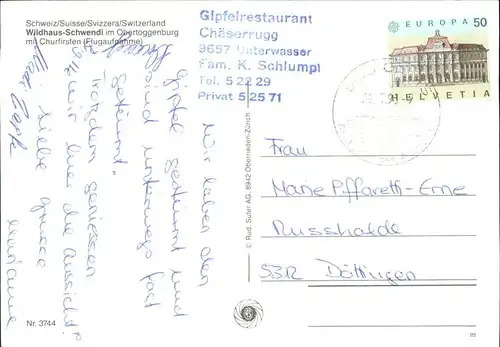 Schweiz/Suisse/Svizzera/Switzerland
Wildhaus-Schwendi im Obertoggenburg
mit Churfirsten (Flugaufnahme)
Gipfelrestaurant
Chäserrugg
9657 Unterwasser
Fam. K. Schlumpf
Tel. 5 22 29
Privat 5 25 71
EUROPA 50
HELVETIA
Wir haben den
Gipfel gestürmt und
sind unterwegs fast
gestürmt.
Trotzdem geniessen
wir hier die Aussicht!
Liebe Grüsse
Marianne
© Rud. Suter AG, 8942 Oberrieden-Zürich
Frau
Marie Piffaretti-Erne
Russhalde
5312 Döttingen
Nr. 3744